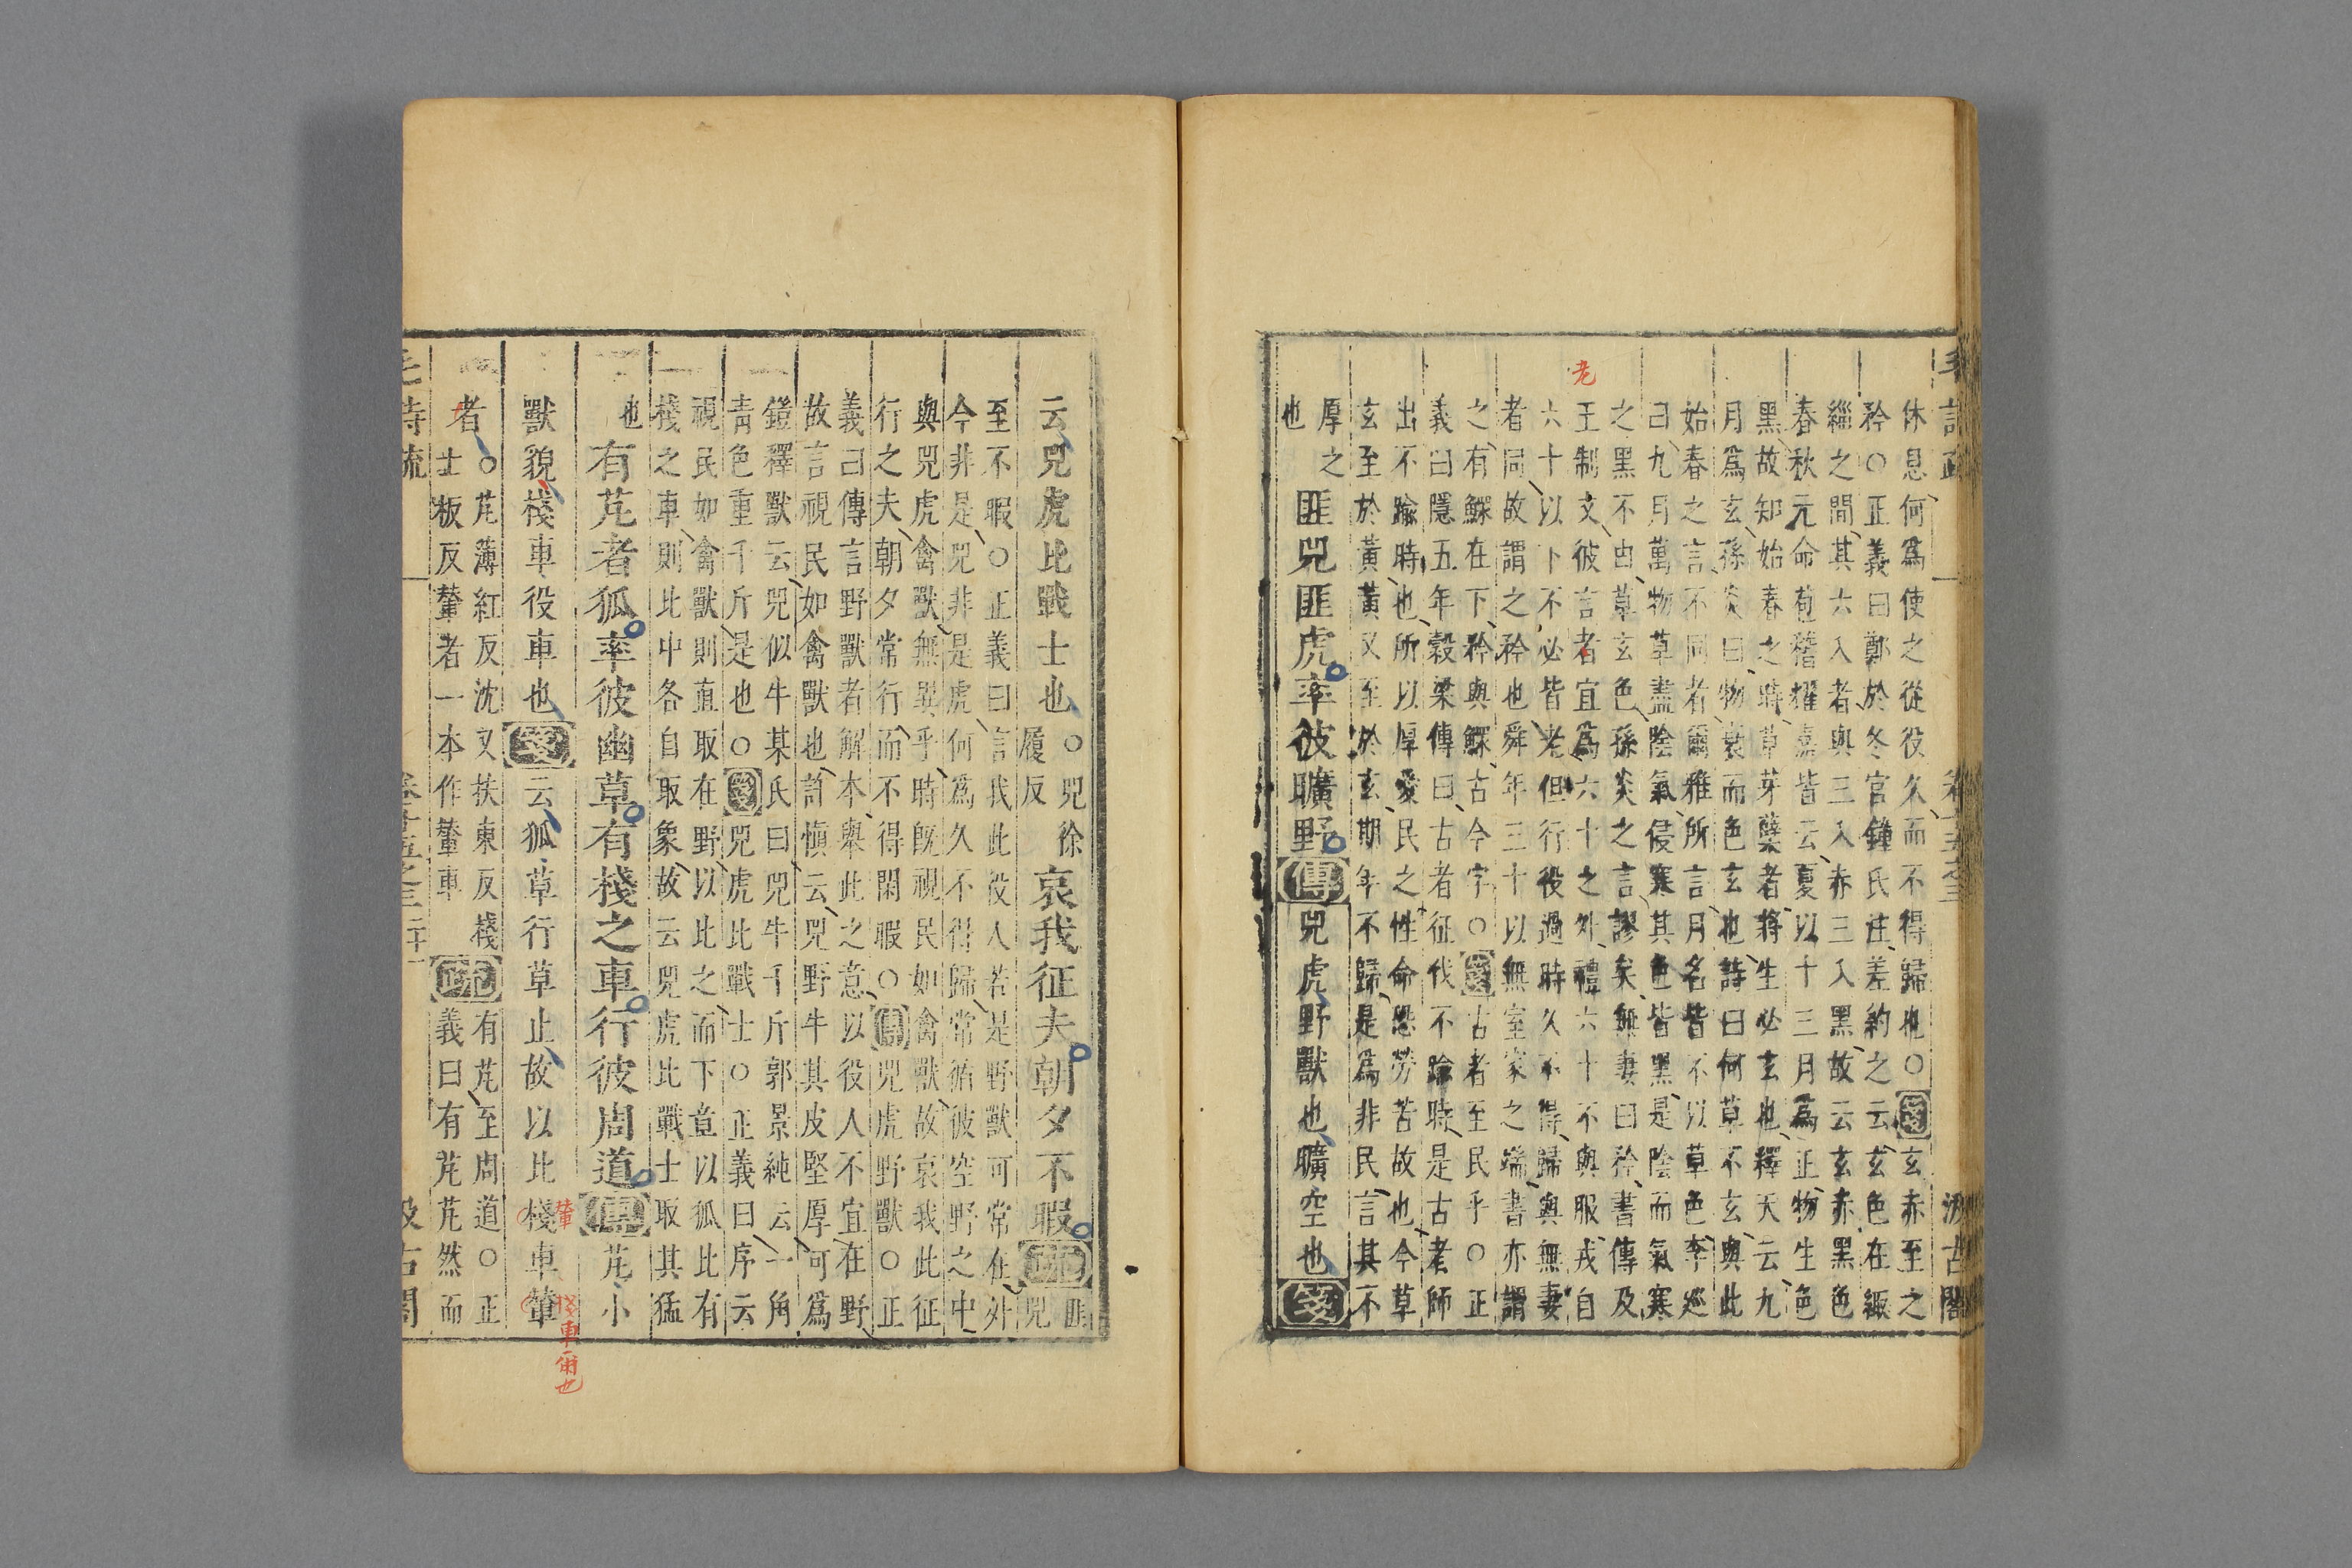 毛詩疏 卷十五之三 汲古閣
休息何爲使之從役久而不得歸也○箋玄赤至之
矜○正義曰鄭於冬官鍾氏注差約之云玄色在緅
緇之間其六入者與三入赤三入黑故云玄赤黑色
春秋元命苞稽耀嘉皆云夏以十三月爲正物生色
黑故知始春之時草芽孽者將生必玄也釋天云九
月爲玄孫炎曰物衰而色玄也詩曰何草不玄與此
始春之言不同者爾雅所言月名皆不以草色李巡
曰九月萬物草盡陰氣侵寒其色皆黑是陰而氣寒
之黑不由草玄色孫炎之言謬矣無妻曰矜書傳及
王制文彼言者宜爲六十之外禮六十不與服戎自
老
六十以下不必皆老但行役過時久不得歸與無妻
者同故謂之矜也舜年三十以無室家之端書亦謂
之有鰥在下矜與鰥古今字○箋古者至民乎○正
義曰隱五年穀梁傳曰古者征伐不踰時是古者師
出不踰時也所以厚愛民之性命恐勞苦故也今草
玄至於黃黃又至於玄期年不歸是爲非民言其不
厚之
也
匪兕匪虎率彼曠野傳兕虎野獸也曠空也箋
云兕虎比戰士也○兕徐
履反
哀我征夫朝夕不暇疏匪
兕
至不暇○正義曰言我此役人若是野獸可常在外
今非是兕非是虎何爲久不得歸常循彼空野之中
與兕虎禽獸無異乎時既視民如禽獸故哀我此征
行之夫朝夕常行而不得閑暇○傳兕虎野獸○正
義曰傳言野獸者解本舉此之意以役人不宜在野
故言視民如禽獸也許慎云兕野牛其皮堅厚可爲
鎧釋獸云兕似牛某氏曰兕牛千斤郭景純云一角
青色重千斤是也○箋兕虎比戰士○正義曰序云
視民如禽獸則直取在野以此之而下章以狐比有
棧之車則比中各自取象故云兕虎比戰士取其猛
也
有芃者狐率彼幽草有棧之車行彼周道傳芃小
獸貌棧車役車也箋云狐草行草止故以比棧車輦
輦
棧車輦也
者○芃薄紅反沈又扶東反棧
士板反輦者一本作輦車
疏有芃至周道○正
義曰有芃芃然而
毛詩疏 卷十五之三 二十一 汲古閣